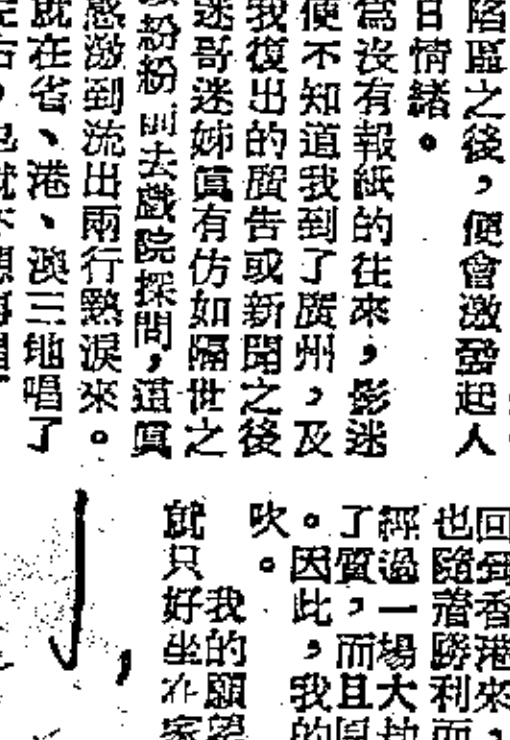 陷區之後，便會激發起人
日情緒。
為沒有報紙的往來，影迷
便不知道我到了廣州，及
我復出的廣告或新聞之後
迷哥迷姊眞有仿如隔世之
紛紛 去戲院探問，這眞
感激到流出兩行熱淚來。
就在省、港、澳三地唱了
回到香港來，
也隨着勝利而
經過一場大
了質，而且
。因此，我的
吹。
我的願望
就只好坐在家